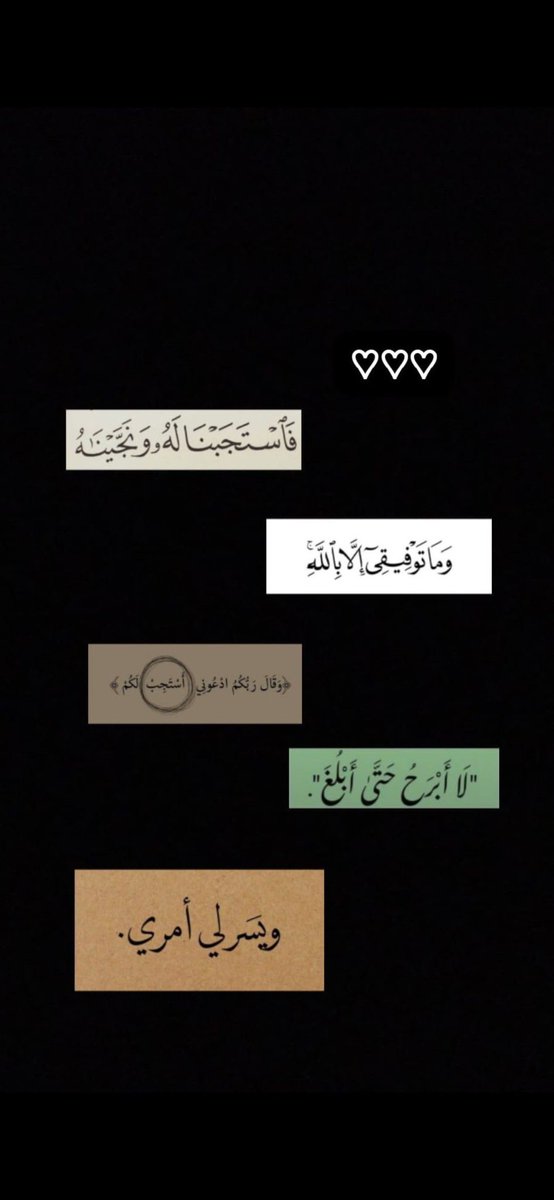 ♡♡♡
فَٱسْتَجَبْنَا لَهُۥ وَنَجَّيْنَٰهُ
وَمَا تَوْفِيقِىٓ إِلَّا بِٱللَّهِ ۚ
﴿وَقَالَ رَبُّكُمُ ادْعُونِي أَسْتَجِبْ لَكُمْ﴾
"لَا أَبْرَحُ حَتَّىٰ أَبْلُغَ".
ويَسَر لي أمري.